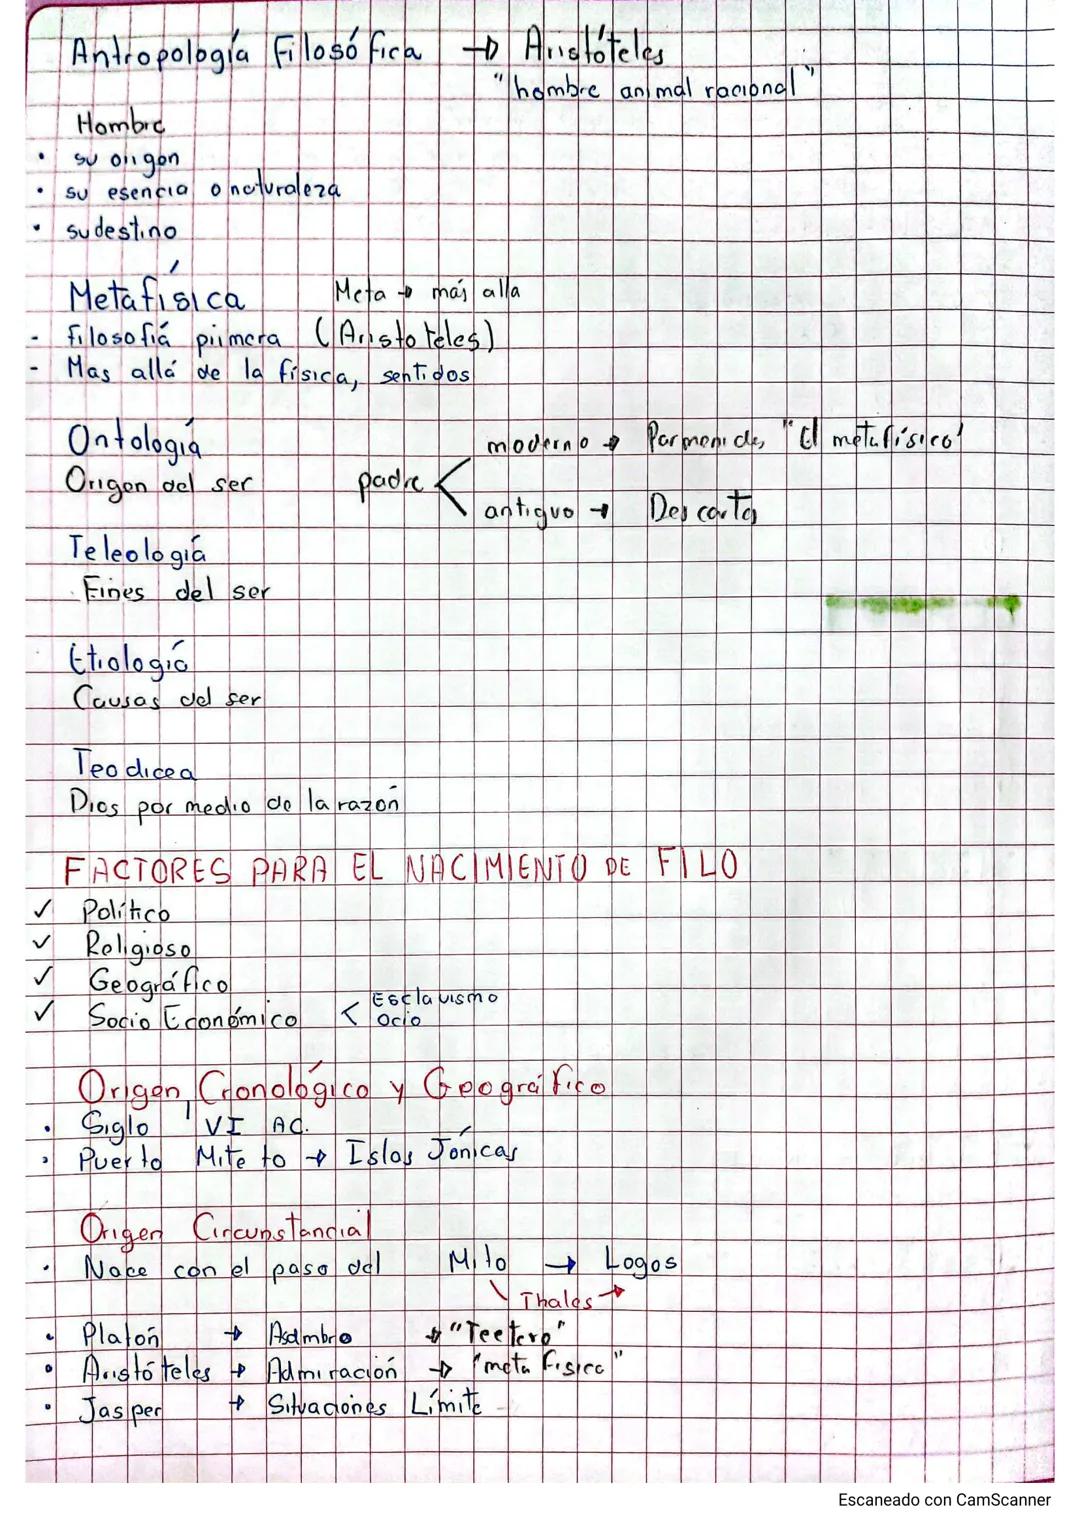 Antropología Filosófica → Aristóteles
"hombre animal racional"
Hombre
• su origen
• su esencia o naturaleza
• su destino
Metafísica Meta → más alla
- filosofía primera (Aristoteles)
- Mas allá de la física, sentidos
Ontología moderno → Parmenides "El metafísico"
Origen del ser padre <
antiguo → Descartes
Teleología
Fines del ser
Etiología
Causas del ser
Teodicea
Dios por medio de la razón
FACTORES PARA EL NACIMIENTO DE FILO
✓ Político
✓ Religioso
✓ Geográfico
✓ Socio Económico < Esclavismo
Ocio
Origen Cronológico y Geográfico
• Siglo VI AC.
• Puerto Miteto → Islas Jónicas
Origen Circunstancial
• Nace con el paso del Mito → Logos
Thales →
• Platón → Asombro → "Teetero"
• Aristóteles → Admiración → "meta física"
• Jasper → Situaciones Límite
Escaneado con CamScanner